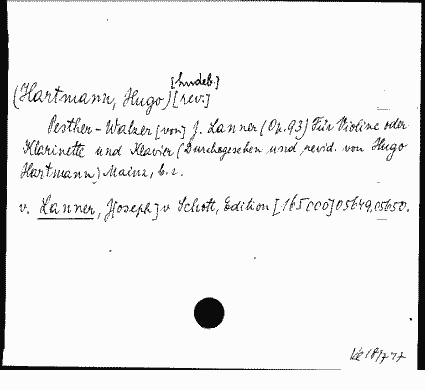 [hudeb.]
(Hartmann, Hugo) [rev.]
Pesther-Walzer [von] J. Lanner (Op. 93) Für Violine oder
Klarinette und Klavier (Durchgesehen und revid. von Hugo
Hartmann,) Mainz, b. r.
v. Lanner, J[oseph] v Schott, Edition [165000] 05649, 05650.